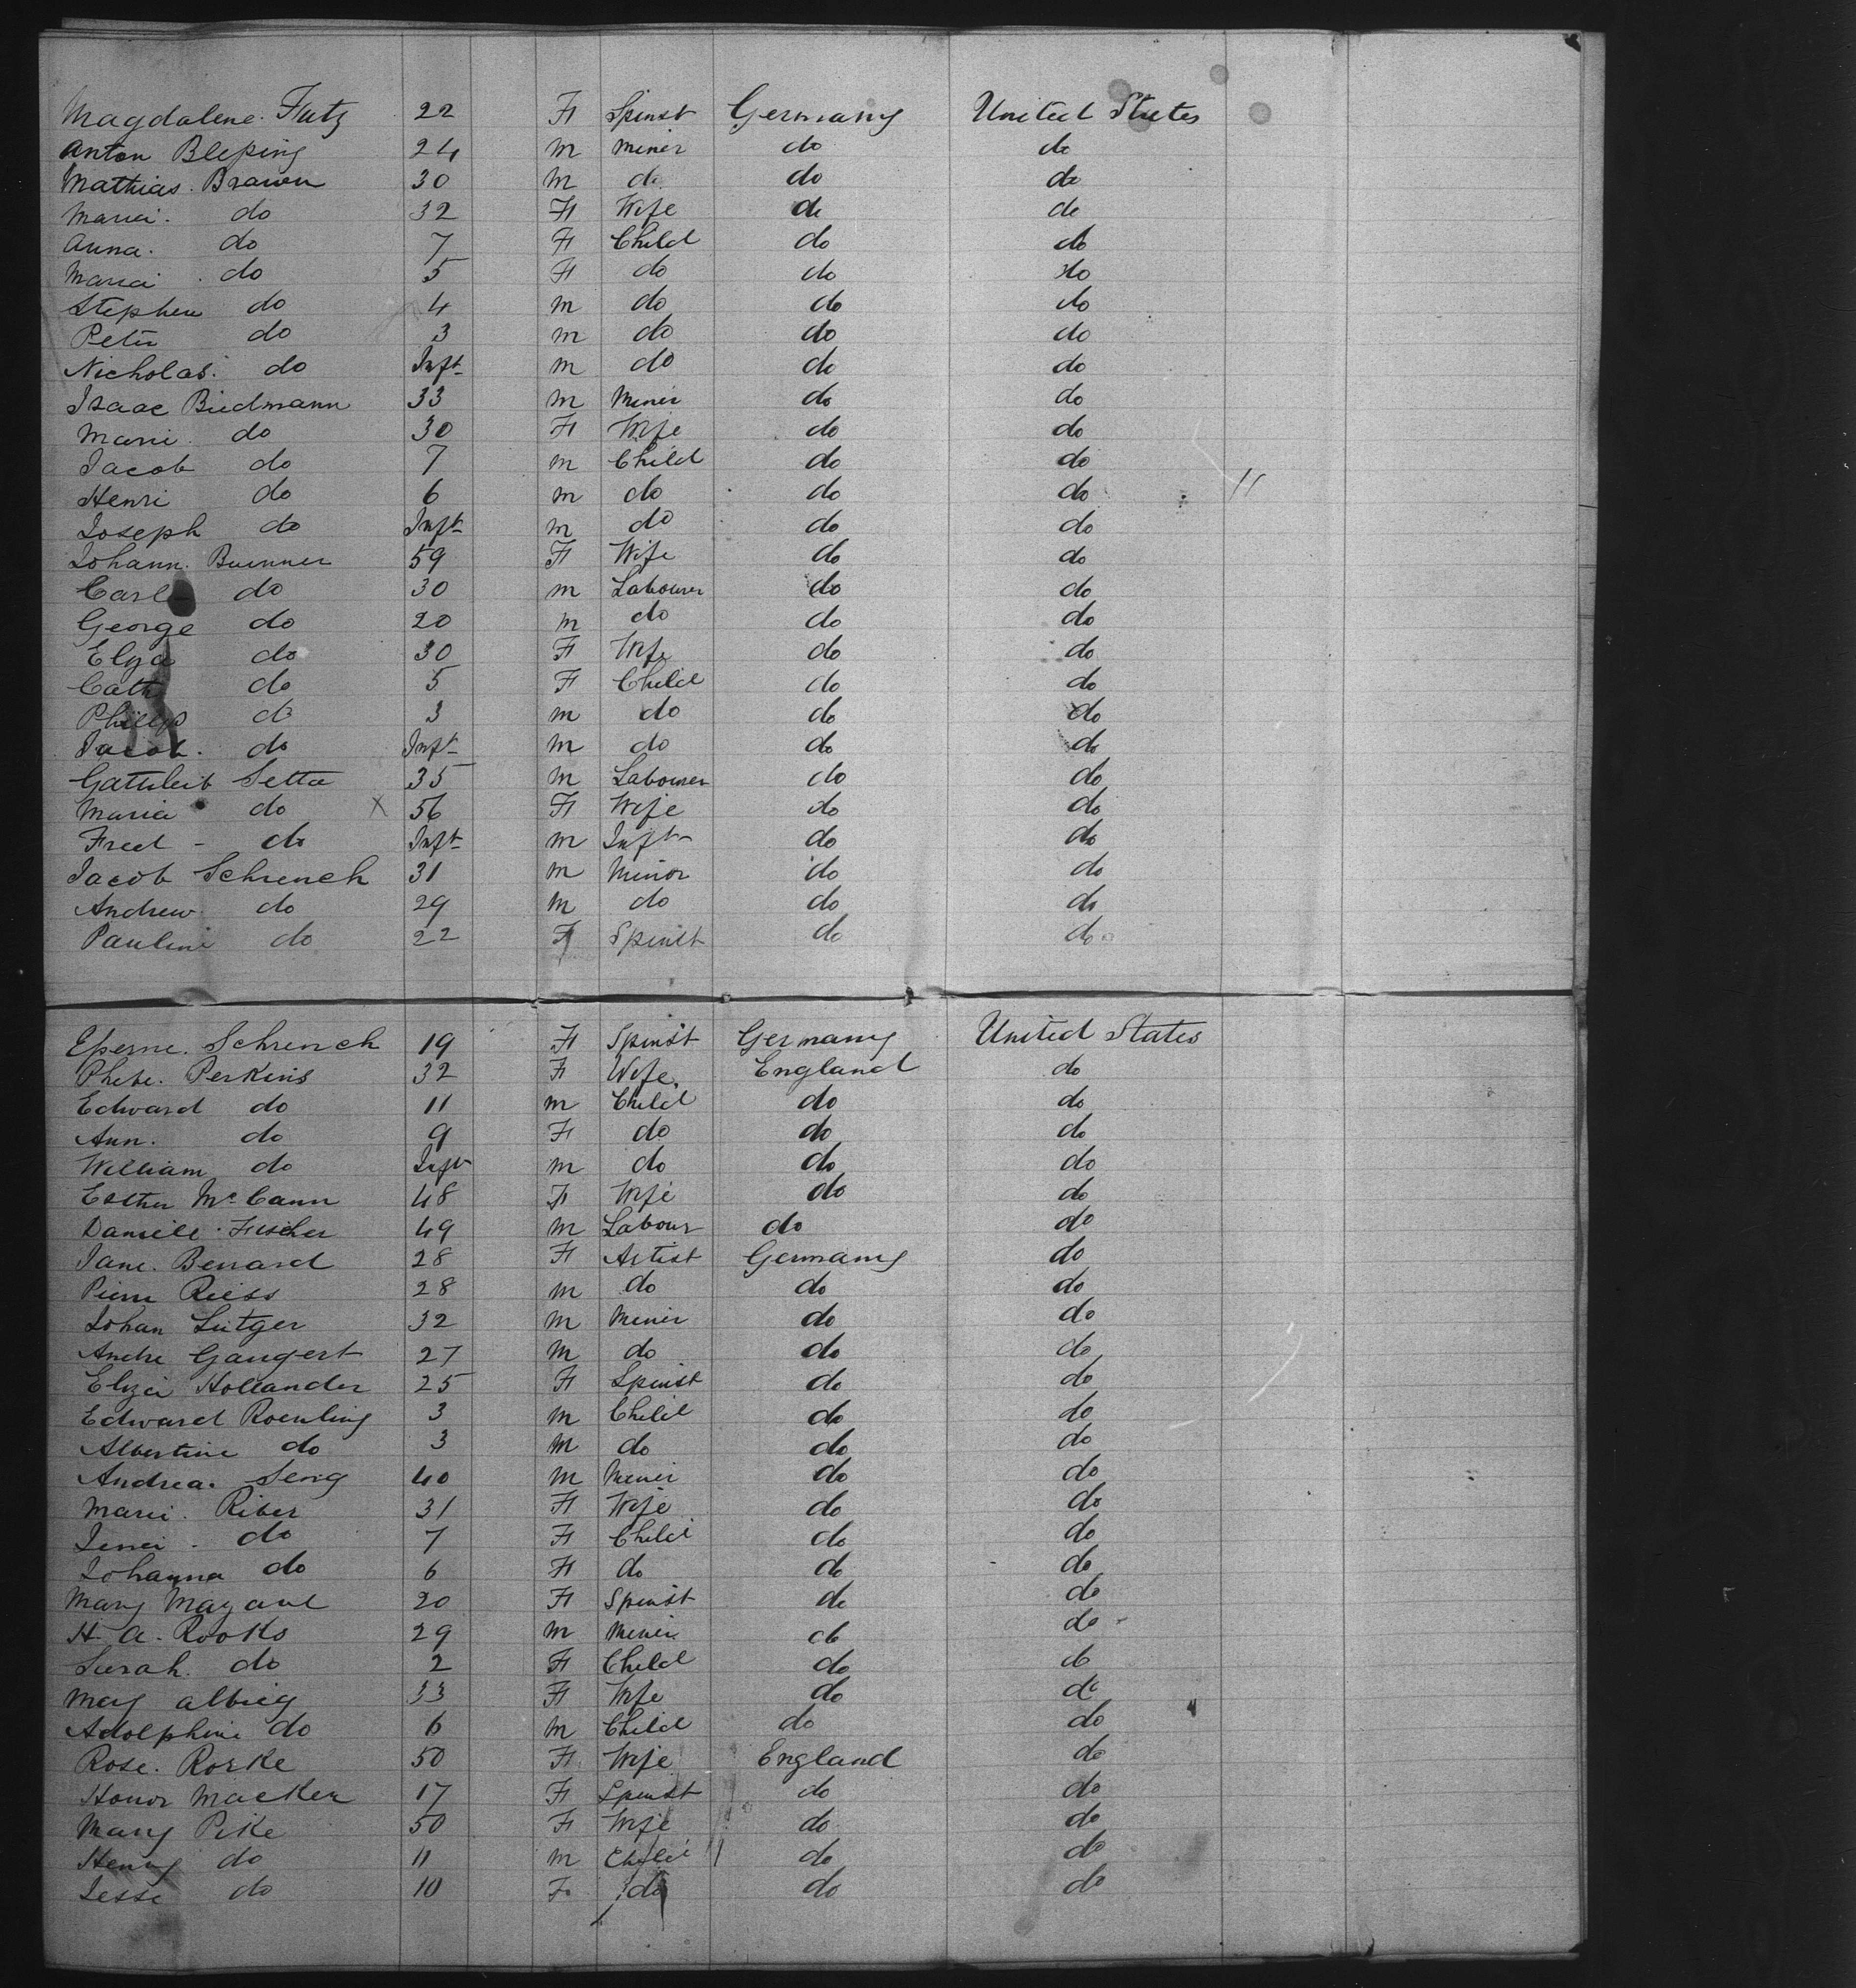 Magdalene Futz 22 F Spinst Germany United States
Anton Bleping 24 m miner do do
Mathias Brawn 30 m do do do
Maria do 32 F Wife do do
Anna do 7 F Child do do
Maria do 5 F do do do
Stephen do 4 m do do do
Peter do 3 m do do do
Nicholas do Inft m do do do
Isaac Biedmann 33 m Miner do do
Marie do 30 F Wife do do
Jacob do 7 m Child do do
Henri do 6 m do do do
Joseph do Inft m do do do
Johann Brenner 59 F Wife do do
Carl do 30 m Labourer do do
George do 20 m do do do
Eliza do 30 F Wife do do
Cath do 5 F Child do do
Phillip do 3 m do do do
Jacob do Inft m do do do
Gattleib Setta 35 m Labourer do do
Maria do X 56 F Wife do do
Fred - do Inft m Inft do do
Jacob Schrenck 31 m Minor do do
Andrew do 29 m do do do
Pauline do 22 F Spinst do do
Eperne Schrenck 19 F Spinst Germany United States
Phebe Perkins 32 F Wife England do
Edward do 11 m Child do do
Ann do 9 F do do do
William do Inft m do do do
Esther McCann 48 F Wife do do
Daniele Fischer 49 m Labour do do
Jane Benard 28 F Artist Germany do
Pierre Riess 28 m do do do
Johan Lutger 32 m Miner do do
Andre Gangert 27 m do do do
Eliza Hollander 25 F Spinst do do
Edward Roenling 3 m Child do do
Albertine do 3 m do do do
Andrea Seng 40 m Miner do do
Marie Riber 31 F Wife do do
do 7 F Child do do
Johanna do 6 F do do do
Mary Mayant 20 F Spinst do do
H. A. Rooks 29 m Miner do do
Sarah do 2 F Child do do
May Albieg 33 F Wife do do
Adolphine do 6 m Child do do
Rose Rorke 50 F Wife England do
Honor Macken 17 F Spinst do do
Mary Pike 50 F Wife do do
Henry do 11 m Child do do
Jesse do 10 F do do do